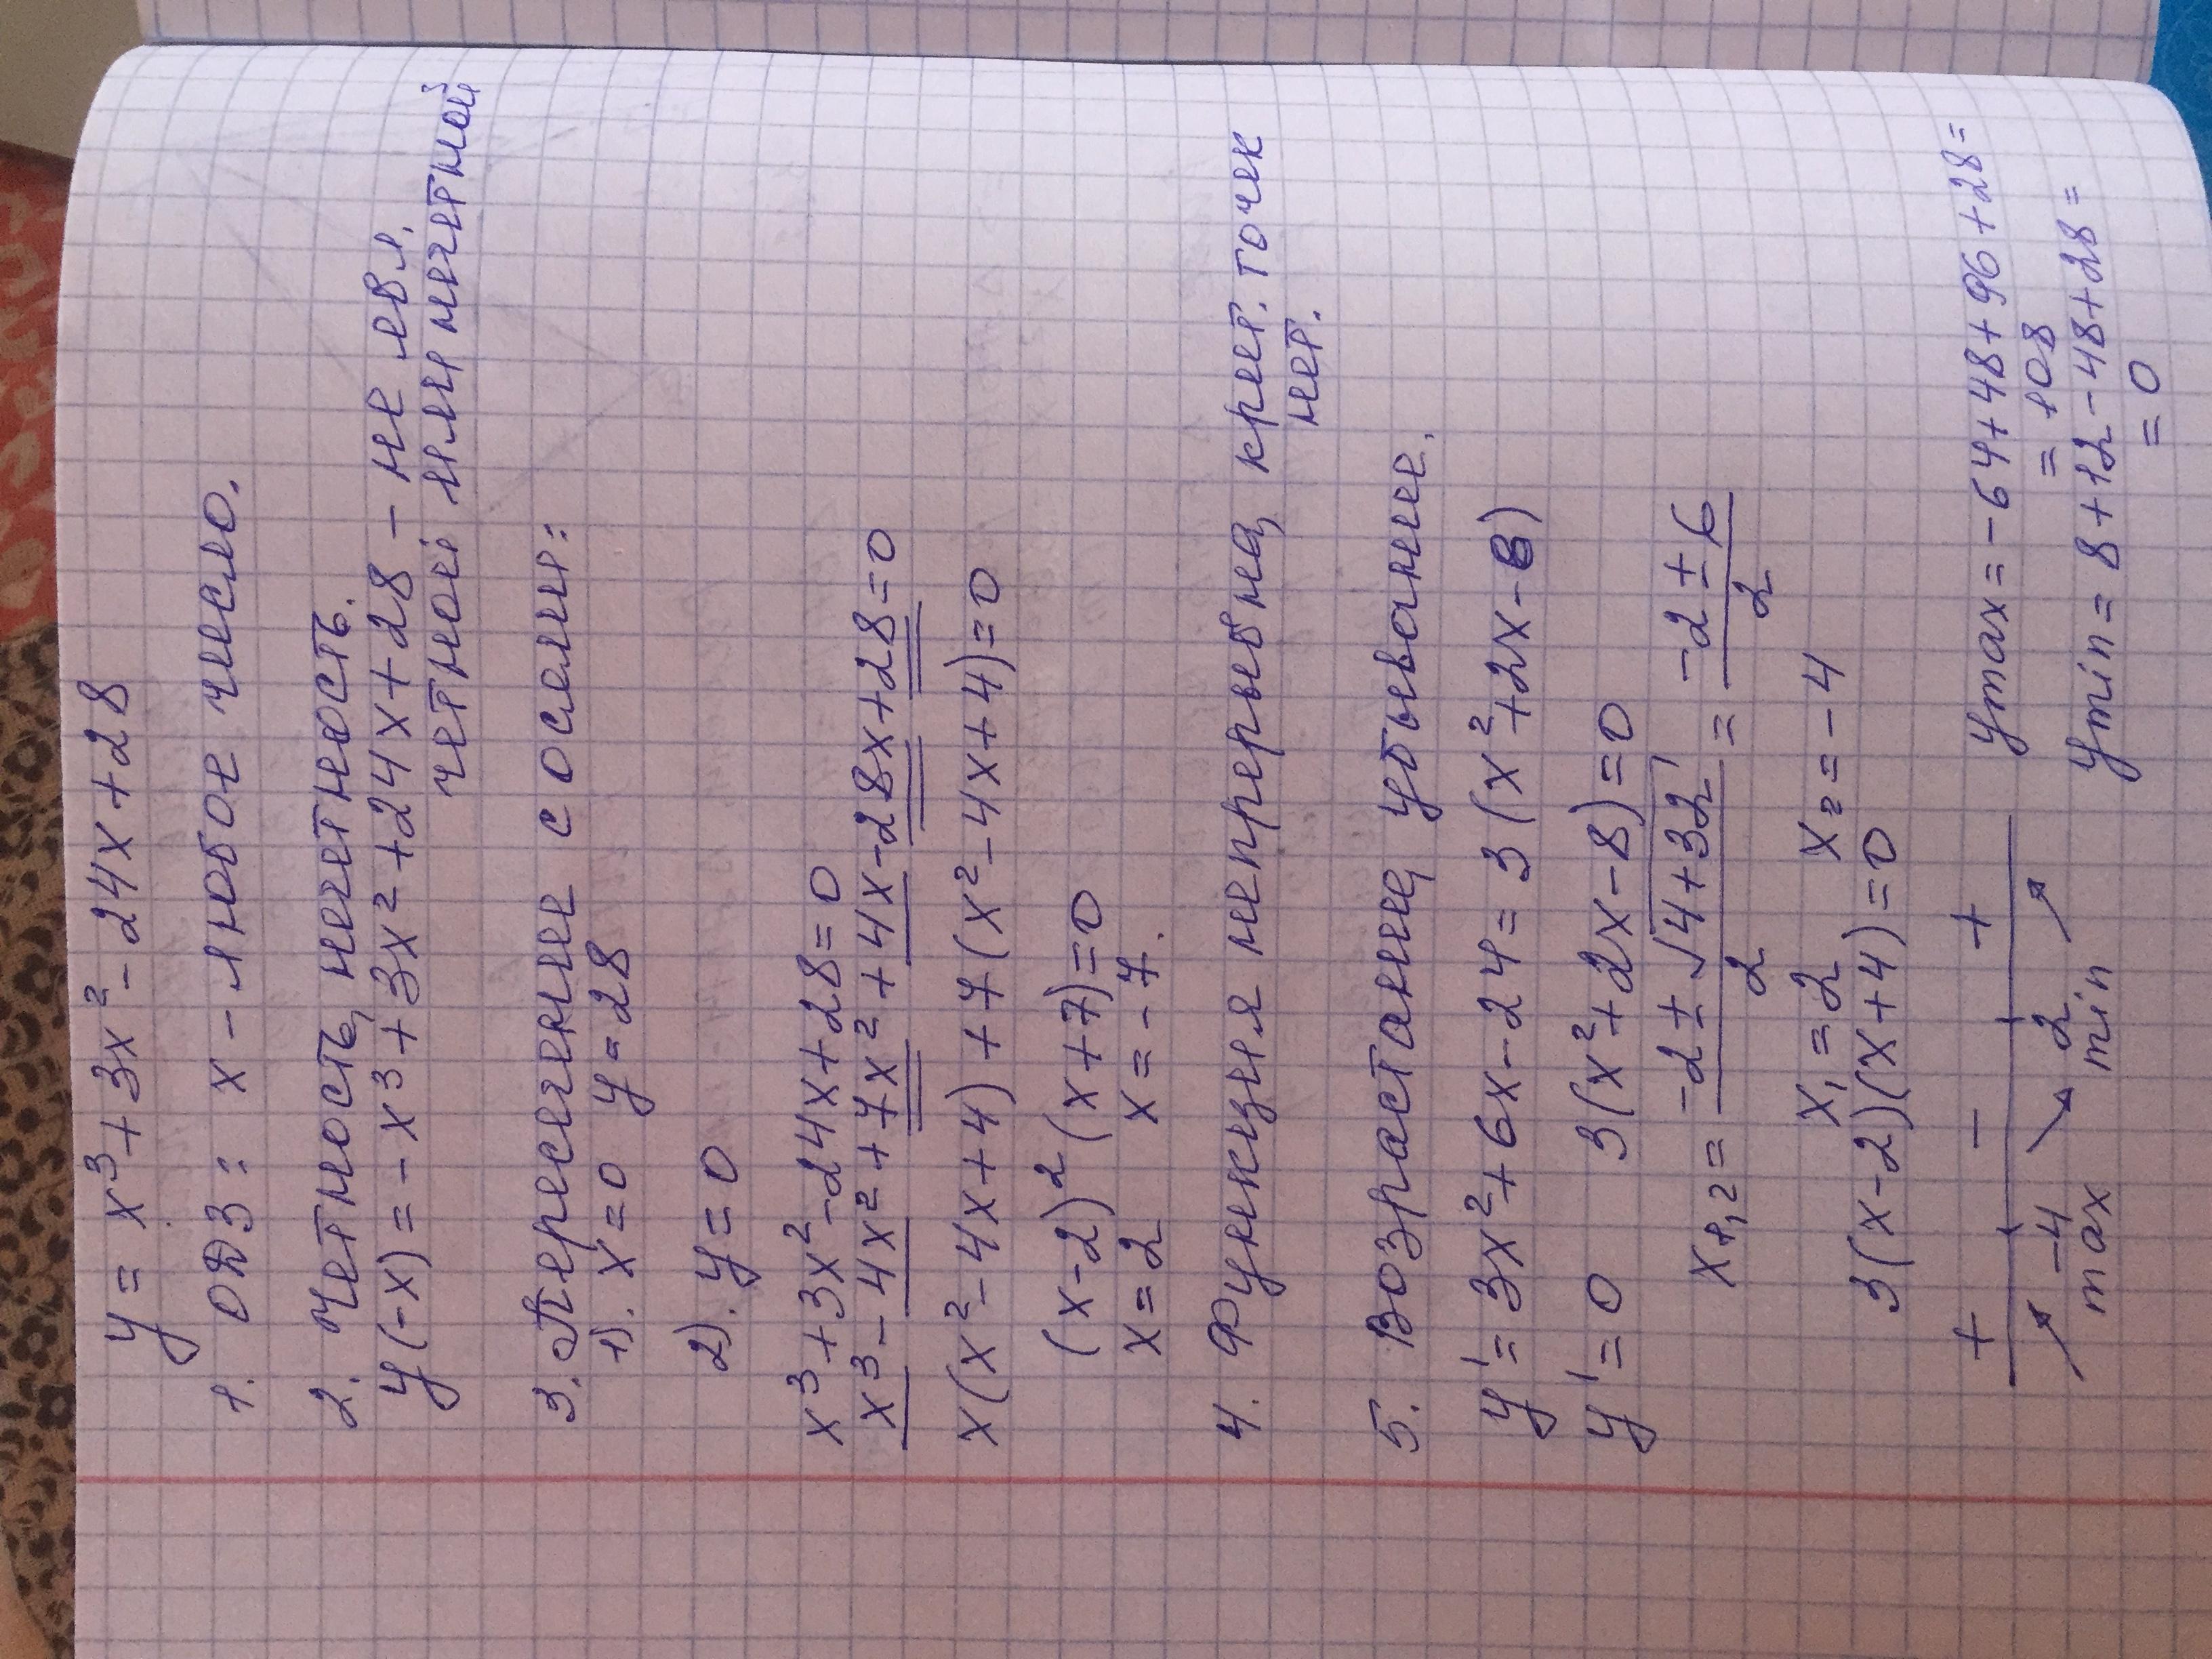 y = x³ + 3x² - 24x + 28
1. ОДЗ: x - любое число.
2. Четность, нечетность.
y(-x) = -x³ + 3x² + 24x + 28 - не явл.
четной или нечетной
3. Пересечение с осями:
1). x = 0 y = 28
2). y = 0
x³ + 3x² - 24x + 28 = 0
x³ - 4x² + 7x² + 4x - 28x + 28 = 0
x(x² - 4x + 4) + 7(x² - 4x + 4) = 0
(x - 2)² (x + 7) = 0
x = 2 x = -7.
4. Функция непрерывна, крит. точек
нет.
5. Возрастание, убывание.
y' = 3x² + 6x - 24 = 3(x² + 2x - 8)
y' = 0 3(x² + 2x - 8) = 0
x₁,₂ = (-2 ± √(4 + 32))/2 = (-2 ± 6)/2
x₁ = 2 x₂ = -4
3(x - 2)(x + 4) = 0
+ - +
-4 2
max min
ymax = -64 + 48 + 96 + 28 =
= 108
ymin = 8 + 12 - 48 + 28 =
= 0